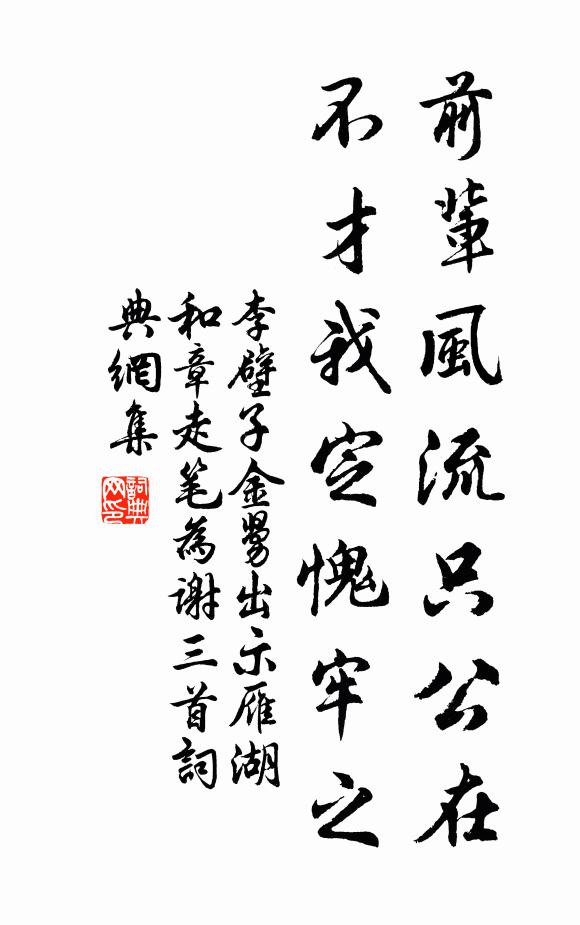 前輩風流只公在
不才我定愧牢之
李壁子金舅出示雁湖
和章走笔為谢三首詞
典網集
詞典网印